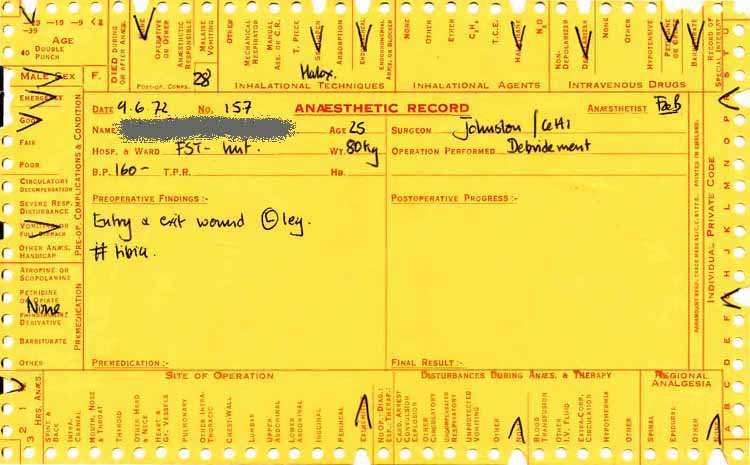 -39 -19 -9 <2
40
AGE
DOUBLE
PUNCH
DIED DURING
OR AFTER ANÆS.
NONE
OPERATIVE
OR OTHER
ANÆSTHETIC
RESPONSIBLE
MALAISE
VOMITING
OTHER
MECHANICAL
RESPIRATOR
MANUAL
ASS. OR C.R.
T. PIECE
ABSORPTION
ENDOTRACHEAL
NONE
OTHER
ETHER
C3H6
T.C.E.
HALOTHANE
N2O
NON-
DEPOLARIZER
DEPOLARIZER
NONE
OTHER
HYPOTENSIVE
PETHIDINE
BARBITURATE
RECORD OF
SPECIAL INTEREST
MALE SEX F.
POST-OP. COMPS.
28
Halox.
INHALATIONAL TECHNIQUES
INHALATIONAL AGENTS
INTRAVENOUS DRUGS
DATE 9.6.72 NO. 157
ANÆSTHETIC RECORD
ANÆSTHETIST
NAME
AGE 25
SURGEON Johnston /
HOSP. & WARD FST-
WT. 80kg
OPERATION PERFORMED Debridement
B.P. 160- T.P.R.
HB.
PREOPERATIVE FINDINGS :-
POSTOPERATIVE PROGRESS :-
Entry & exit wound Ⓛ leg.
# tibia.
PREMEDICATION :-
FINAL RESULT :-
EMERGENCY
GOOD
FAIR
POOR
CIRCULATORY
DECOMPENSATION
SEVERE RESP.
DISTURBANCE
VOMITING OR
FULL STOMACH
OTHER ANÆS.
HANDICAP
PRE-OP. COMPLICATIONS & CONDITION
ATROPINE OR
SCOPOLAMINE
PETHIDINE
OR OPIATE
None.
PHENOTHIAZINE
DERIVATIVE
BARBITURATE
OTHER
PREMEDICATION
PRINTED IN ENGLAND.
INDIVIDUAL PRIVATE CODE
A B C D E F G H I J K L M N O P
SITE OF OPERATION
DISTURBANCES DURING ANÆS. & THERAPY
REGIONAL
ANALGESIA
3 2 1
HRS. ANÆS.
SPINE &
BACK
INTRA-
CRANIAL
MOUTH, NOSE
& THROAT
THYROID
OTHER HEAD
& NECK
HEART &
GT. VESSELS
PULMONARY
OTHER INTRA-
THORACIC
CHEST-WALL
LUMBAR
UPPER
ABDOMINAL
LOWER
ABDOMINAL
INGUINAL
PERINEAL
EXTREMITIES
NO OP., DIAG.,
ETC., THERAP.
CARD. ARREST
CONVULSION
EXPLOSION
OTHER
CIRCULATORY
UNEXPECTED
RESPIRATORY
UNPROTECTED
VOMITING
OTHER
NONE
BLOOD
TRANSFUSION
OTHER
I.V. FLUID
EXTRA-CORP.
CIRCULATION
HYPOTHERMIA
OTHER
SPINAL
EPIDURAL
OTHER